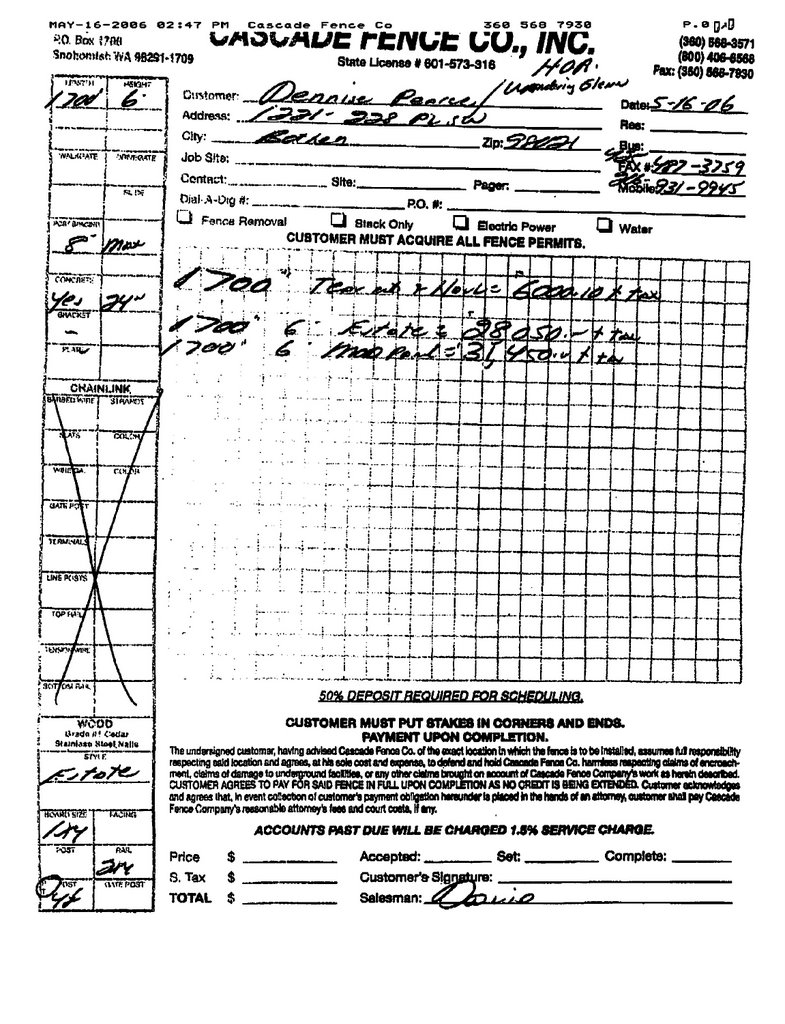 MAY-16-2006 02:47 PM Cascade Fence Co 360 568 7930 P.
CASCADE FENCE CO., INC.
P.O. Box 1709
Snohomish WA 98291-1709
State License # 601-573-316
(360) 568-3571
(800) 406-6568
Fax: (360) 568-7930
HOA.
LENGTH HEIGHT
1700' 6'
WALKGATE DRIVEGATE
SLIDE
POST SPACING
8' Max
CONCRETE
Yes 24"
BRACKET
-
Customer: Dennise Pearcey / Wandering Glenn
Date: 5-16-06
Address: 1221-228 PL SW
Res:
City: Bothell Zip: 98021
Bus:
Job Site:
FAX #: 487-3759
Contact: Site: Pager:
Mobile: 931-9945
Dial-A-Dig #: P.O. #:
Fence Removal Stack Only Electric Power Water
CUSTOMER MUST ACQUIRE ALL FENCE PERMITS.
1700" Tear out & Haul = 6000.10 + tax
1700" 6' Estate = 28,050.- + tax
1700" 6' Mod Panl = 31,450.- + tax
CHAINLINK
BARBED WIRE STRANDS
SLATS COLOR
WIRE GA. COLOR
GATE POST
TERMINALS
LINE POSTS
TOP RAIL
TENSION WIRE
BOTTOM RAIL
WOOD
Grade #1 Cedar
Stainless Steel Nails
STYLE
Estate
BOARD SIZE FACING
1x4
POST RAIL
2x4
POST GATE POST
4x4
50% DEPOSIT REQUIRED FOR SCHEDULING.
CUSTOMER MUST PUT STAKES IN CORNERS AND ENDS.
PAYMENT UPON COMPLETION.
The undersigned customer, having advised Cascade Fence Co. of the exact location in which the fence is to be installed, assumes full responsibility
respecting said location and agrees, at his sole cost and expense, to defend and hold Cascade Fence Co. harmless respecting claims of encroach-
ment, claims of damage to underground facilities, or any other claims brought on account of Cascade Fence Company's work as herein described.
CUSTOMER AGREES TO PAY FOR SAID FENCE IN FULL UPON COMPLETION AS NO CREDIT IS BEING EXTENDED. Customer acknowledges
and agrees that, in event collection of customer's payment obligation hereunder is placed in the hands of an attorney, customer shall pay Cascade
Fence Company's reasonable attorney's fees and court costs, if any.
ACCOUNTS PAST DUE WILL BE CHARGED 1.5% SERVICE CHARGE.
Price $ Accepted: Set: Complete:
S. Tax $ Customer's Signature:
TOTAL $ Salesman: Dario